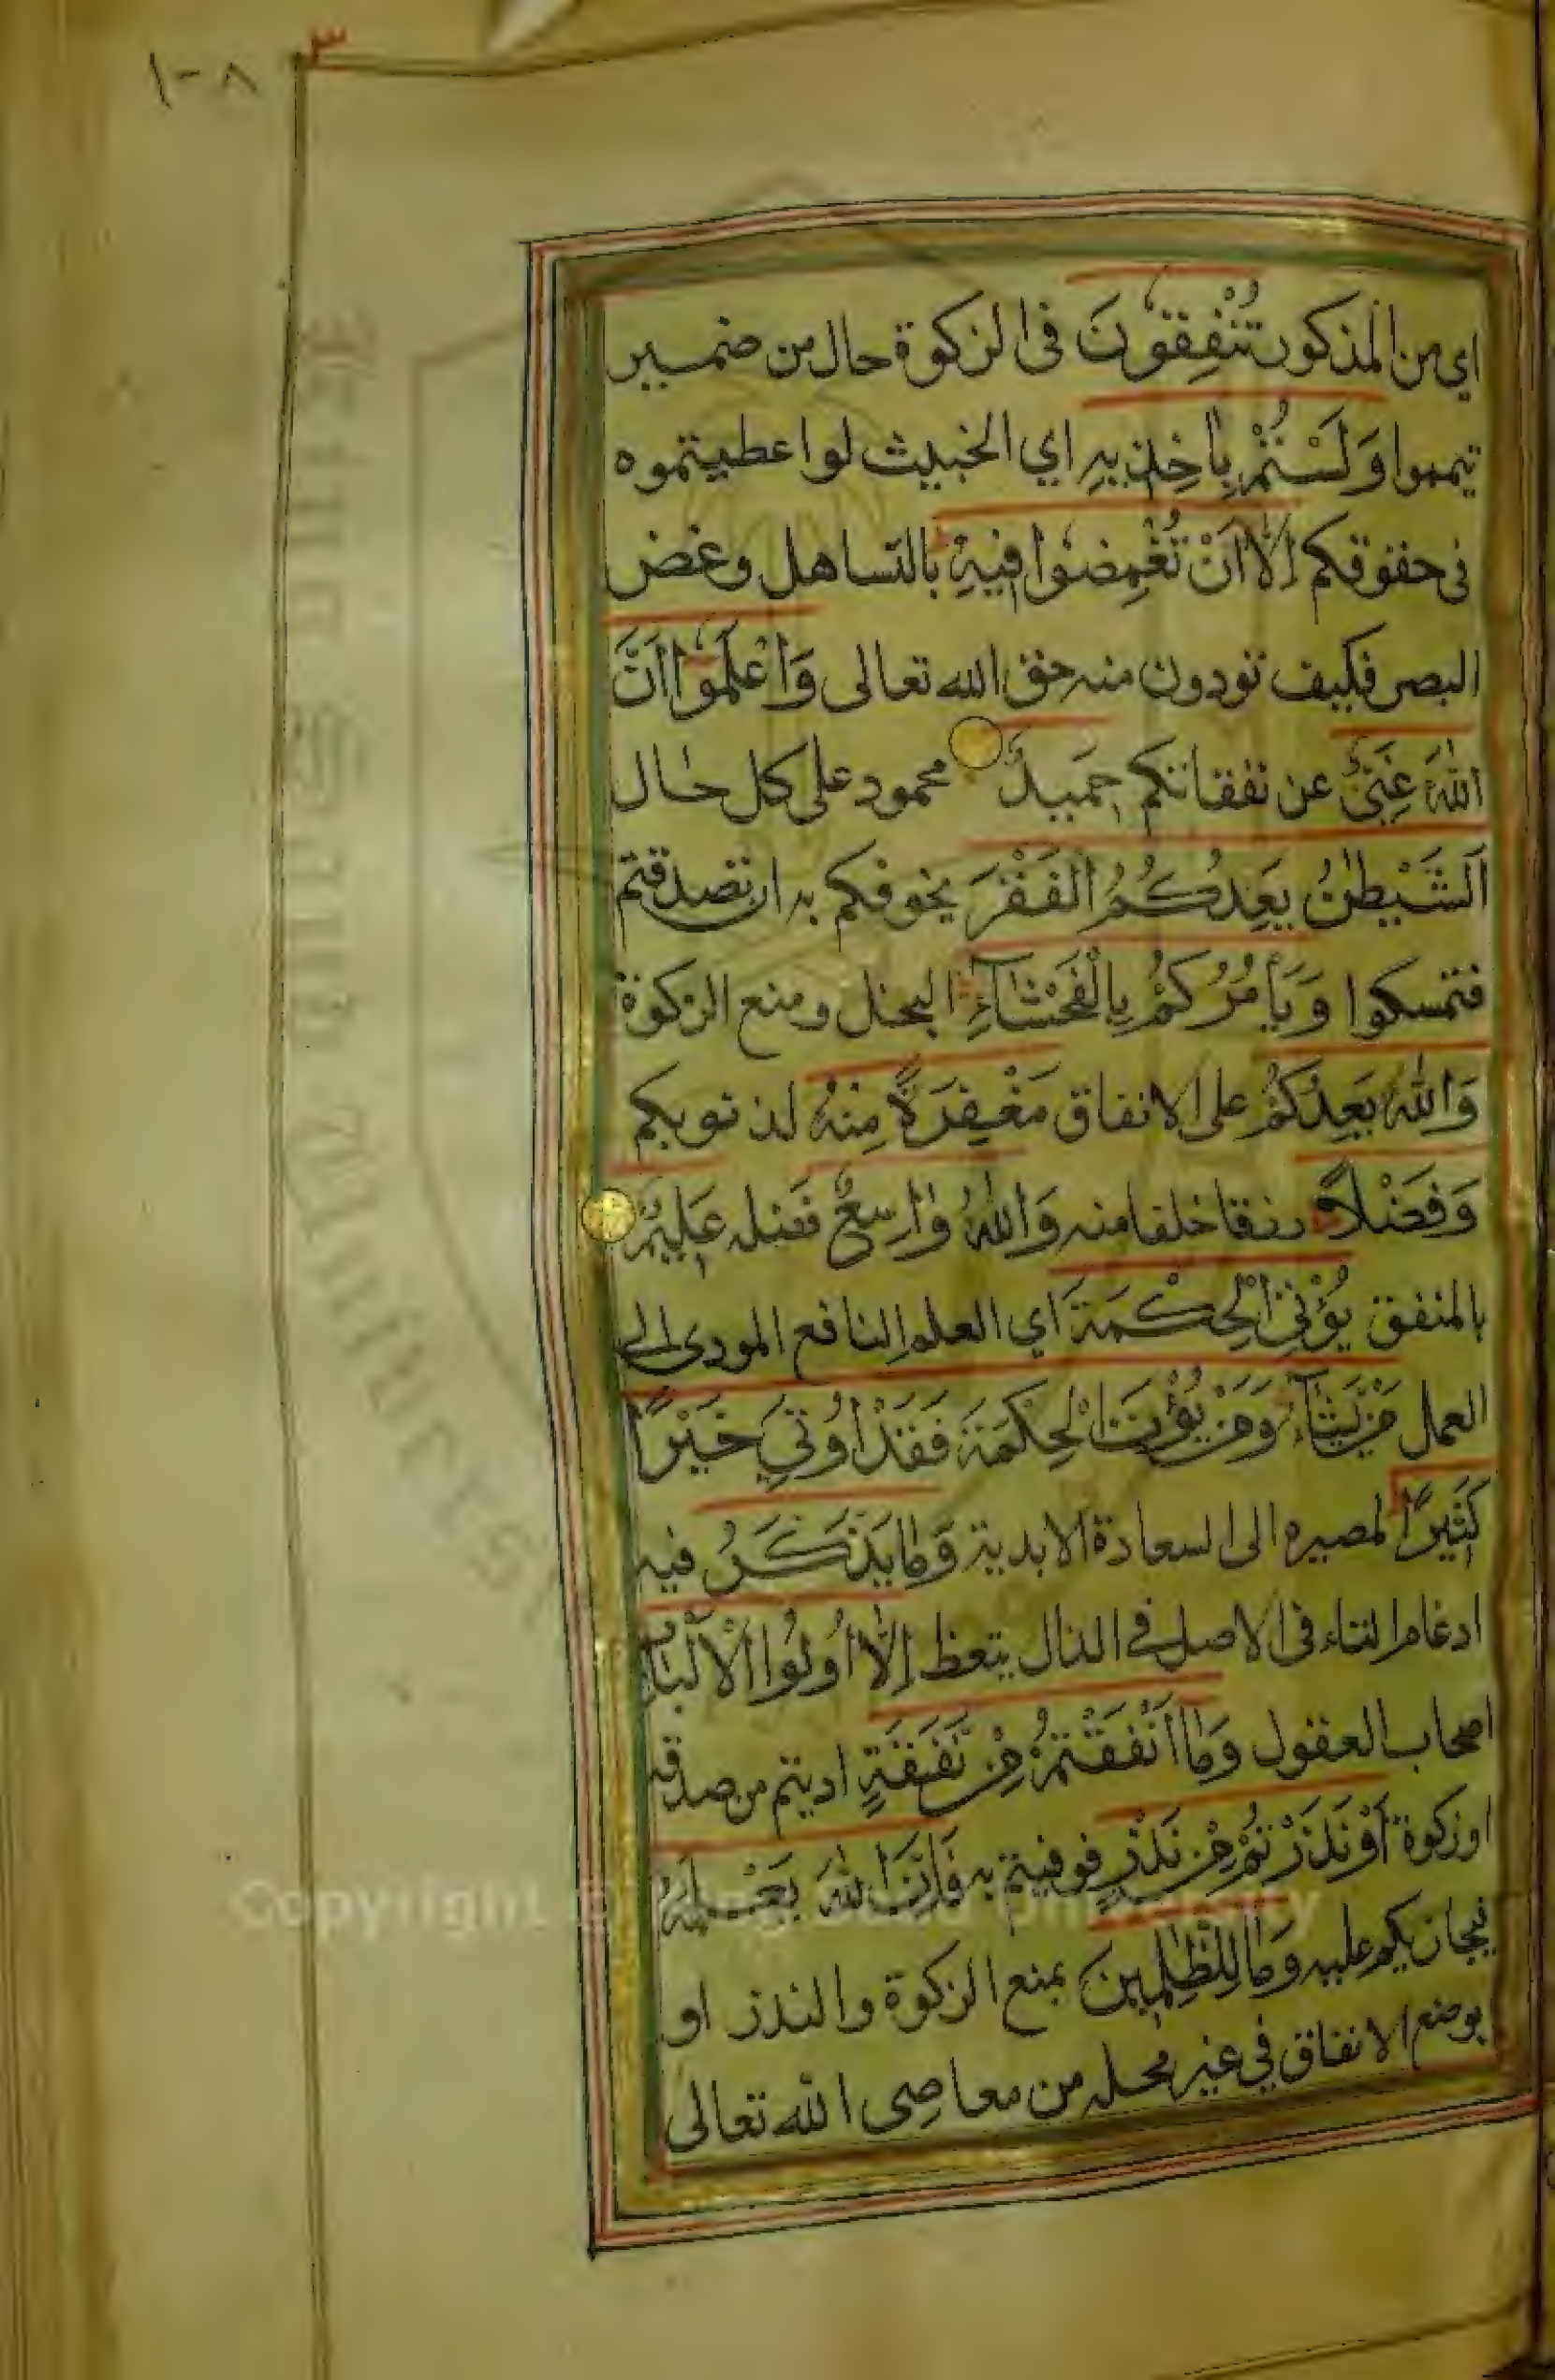 ١-٨
٣
اي من المذكور تُنْفِقُونَ فى الزكوة حال من ضمير
تيمموا وَلَسْتُمْ بِاٰخِذِيهِ اي الخبيث لو اعطيتموه
فى حقوقكم اِلَّا اَنْ تُغْمِضُوا فِيهِ بالتساهل وغض
البصر فكيف تودون منه حق الله تعالى وَاعْلَمُوا اَنَّ
اللّٰهَ غَنِىٌّ عن نفقاتكم حَمِيدٌ محمود على كل حال
اَلشَّيْطٰنُ يَعِدُكُمُ الْفَقْرَ يخوفكم به ان تصدقتم
فتمسكوا وَيَأْمُرُكُمْ بِالْفَحْشَآءِ البخل ومنع الزكوة
وَاللّٰهُ يَعِدُكُمْ على الانفاق مَغْفِرَةً مِنْهُ لذنوبكم
وَفَضْلًا رزقا خلفا منه وَاللّٰهُ وٰاسِعٌ فضله عَلِيمٌ
بالمنفق يُؤْتِى الْحِكْمَةَ اي العلم النافع المودى الى
العمل مَنْ يَشَآءُ وَمَنْ يُؤْتَ الْحِكْمَةَ فَقَدْ اُوتِيَ خَيْرًا
كَثِيرًا لمصيره الى السعادة الابدية وَمَا يَذَّكَّرُ فيه
ادغام التاء فى الاصل في الذال يتعظ اِلَّا اُولُوا الْاَلْبَابِ
اصحاب العقول وَمَا اَنْفَقْتُمْ مِنْ نَفَقَةٍ اديتم من صدقه
او زكوة اَوْ نَذَرْتُمْ مِنْ نَذْرٍ فوفيتم به فَاِنَّ اللّٰهَ يَعْلَمُهُ
فيجازيكم عليه وَمَا لِلظّٰلِمِينَ بمنع الزكوة والنذر او
بوضع الانفاق في غير محله من معاصى الله تعالى
Copyright © King Saud University